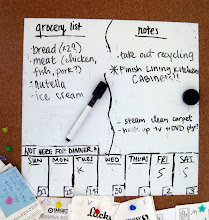 grocery list
- bread (x2?)
- meat (chicken,
fish, pork?)
- nutella
- ice cream
notes
- take out recycling
* Finish Lining Kitchen
CABINETS!!
- steam clean carpet
- hook up TV + DVD plyr!
NOT HERE FOR DINNER:
SUN MON TUES WED THURS FRI SAT
K S S
30 1 2 3